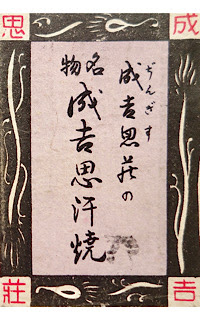 成吉
思莊
ぢんぎす
成吉思莊の
名物
成吉思汗焼